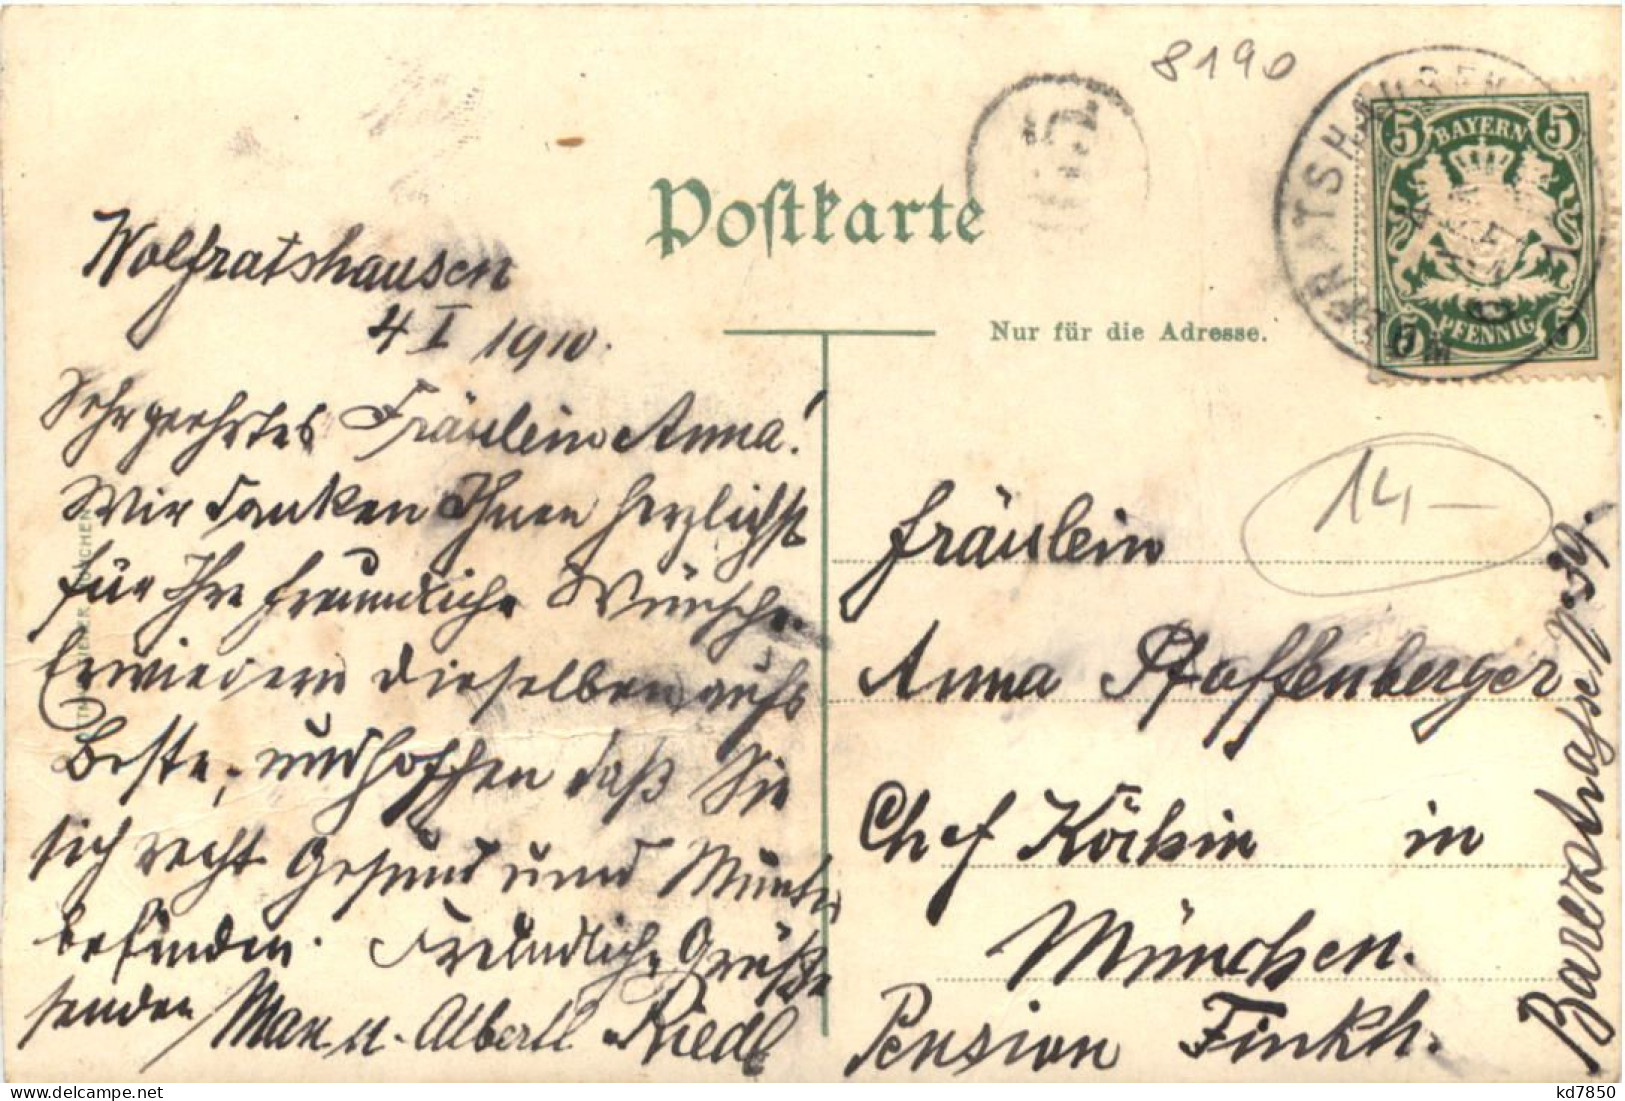 8190
Postkarte
BAYERN
5 5
PFENNIG
5 5
Nur für die Adresse.
14-
Wolfratshausen
4 I 1910.
Sehrgeehrtes Fräulein Anna!
Wir danken Ihnen herzlichst
für Ihre freundliche Wünsche.
Erwiedern dieselben aufs
Beste, und hoffen daß Sie
sich recht Gesund und Munter
befinden. Freundliche Grüße
senden Max u. Albert Riedl
Fräulein
Anna Pfaffenberger
Chef Köchin in
München.
Pension Finkh.
Barerstrasse N. 39.
kd7850